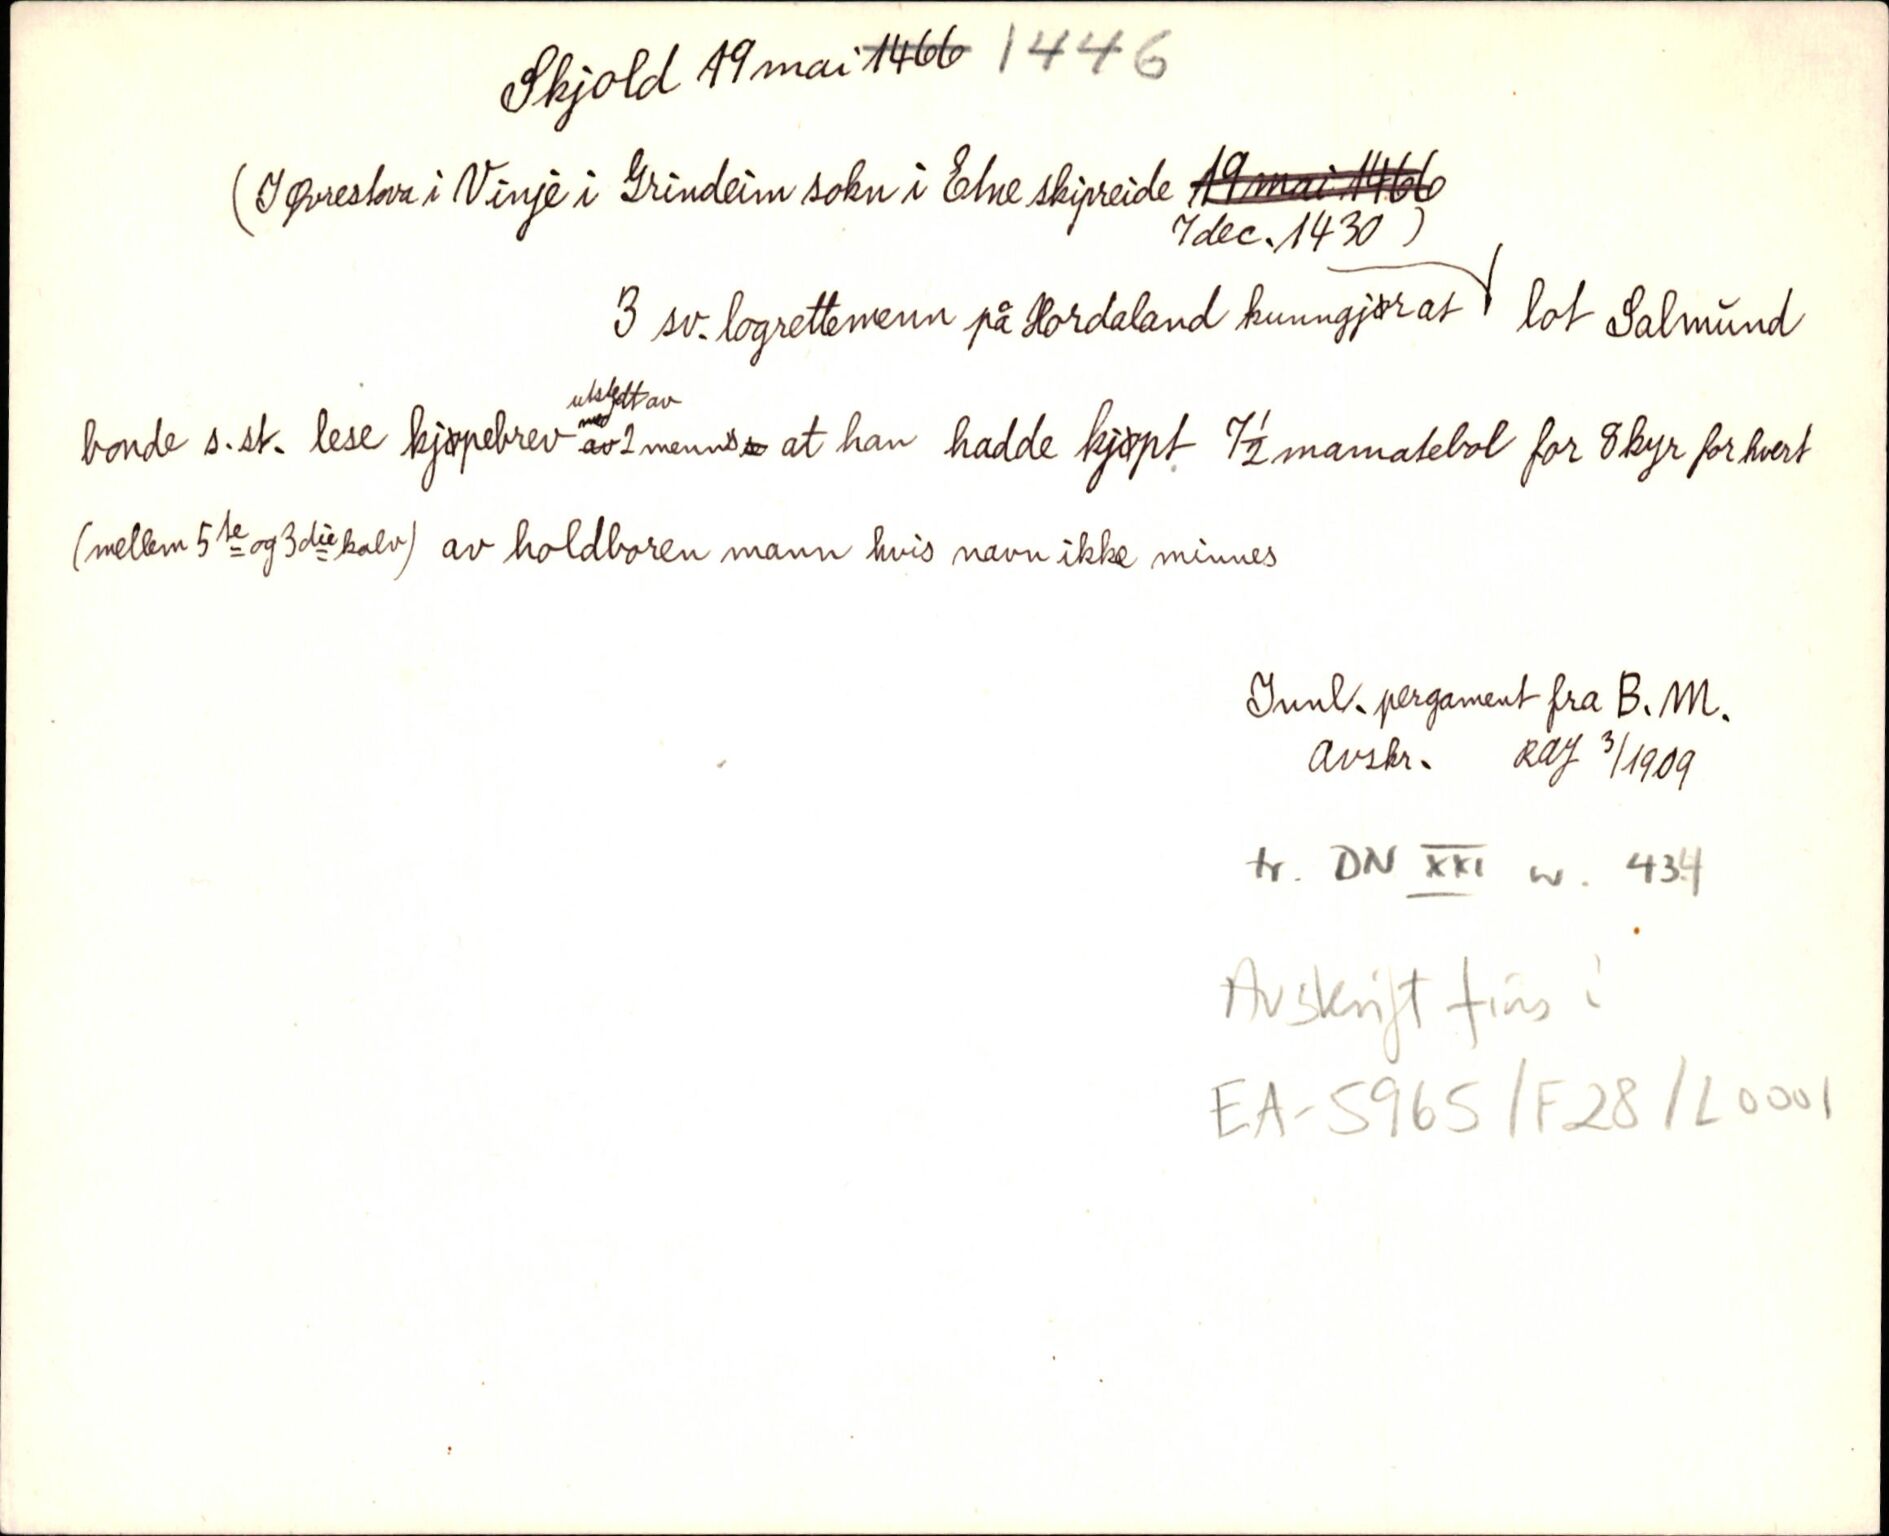 Skjold 19 mai 1466 1446
(I Øvrestova i Vinje i Grindeim sokn i Etne skipreide 19 mai 1466
7 dec. 1430)
3 sv. logrettemenn på Hordaland kunngjør at lot Salmund
utstedt av
med
bonde s.st. lese kjøpebrev av 2 menns at han hadde kjøpt 7½ mamatebol for 8 kyr for hvert
(mellem 5te og 3die kalv) av holdboren mann hvis navn ikke minnes
Innl. pergament fra B. M.
Avskr. RAJ 3/1909
tr. DN XXI nr. 434
Avskrift fins i
EA-5965/F28/L0001